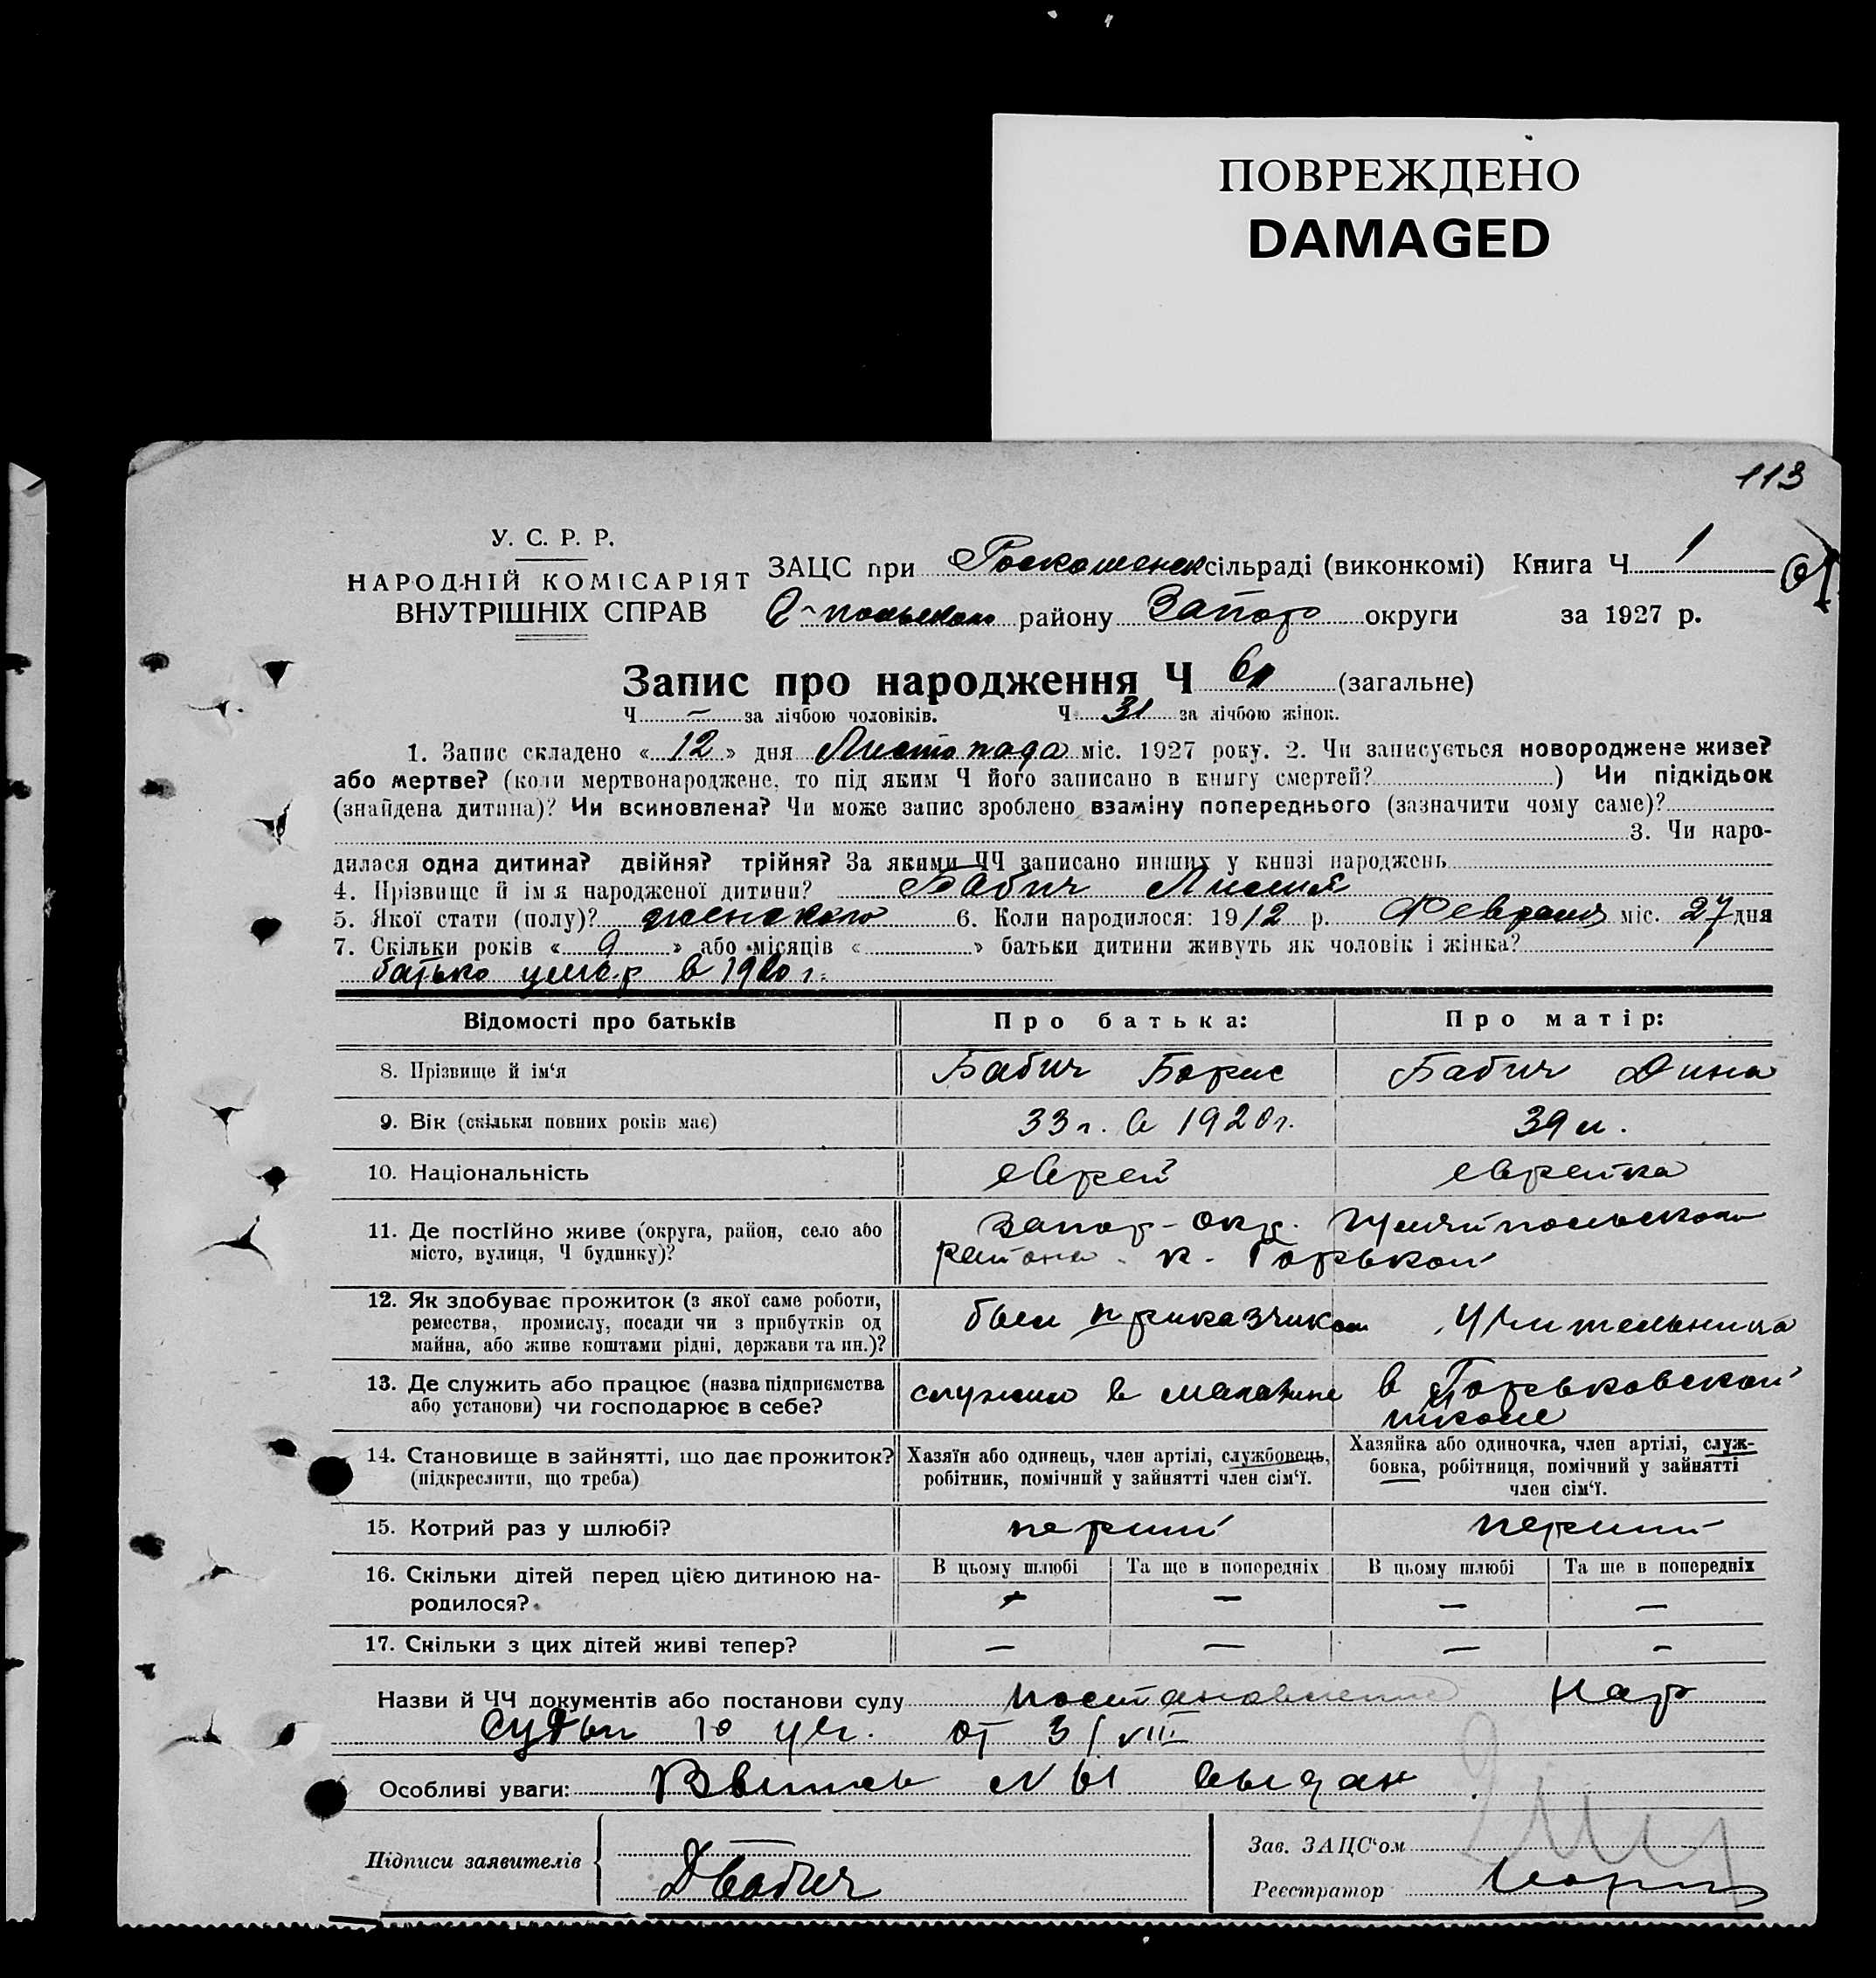 ПОВРЕЖДЕНО
DAMAGED
113
У. С. Р. Р.
НАРОДНІЙ КОМІСАРІЯТ
ВНУТРІШНІХ СПРАВ
ЗАЦС при сільраді (виконкомі) Книга Ч 1
району Запор округи за 1927 р.
Запис про народження Ч (загальне)
Ч — за лічбою чоловіків. Ч 31 за лічбою жінок.
1. Запис складено « 12 » дня Листопада міс. 1927 року. 2. Чи записується новороджене живе?
або мертве? (коли мертвонароджене, то під яким Ч його записано в книгу смертей? ) Чи підкідьок
(знайдена дитина)? Чи всиновлена? Чи може запис зроблено взаміну попереднього (зазначити чому саме)?
3. Чи наро-
дилася одна дитина? двійня? трійня? За якими ЧЧ записано инших у книзі народжень
4. Прізвище й ім я народженої дитини? Бабич
5. Якої стати (полу)? женского 6. Коли народилося: 1912 р. Февраля міс. 27 дня
7. Скільки років « 9 » або місяців « » батьки дитини живуть як чоловік і жінка?
батько умер в 1920 г.
Відомості про батьків
Про батька:
Про матір:
8. Прізвище й ім'я
Бабич Борис
Бабич Дина
9. Вік (скільки повних років має)
33 г. в 1920 г.
39 л.
10. Національність
еврей
еврейка
11. Де постійно живе (округа, район, село або
місто, вулиця, Ч будинку)?
Запор-окр.
района к. Горькой
12. Як здобуває прожиток (з якої саме роботи,
ремества, промислу, посади чи з прибутків од
майна, або живе коштами рідні, держави та ин.)?
был приказчиком
Учительница
13. Де служить або працює (назва підприємства
або установи) чи господарює в себе?
служил в магазине
в Горьковской
школе
14. Становище в зайнятті, що дає прожиток?
(підкреслити, що треба)
Хазяїн або одинець, член артілі, службовець,
робітник, помічний у зайнятті член сім'ї.
Хазяйка або одиночка, член артілі, служ-
бовка, робітниця, помічний у зайнятті
член сім'ї.
15. Котрий раз у шлюбі?
перший
перший
16. Скільки дітей перед цією дитиною на-
родилося?
В цьому шлюбі Та ще в попередніх В цьому шлюбі Та ще в попередніх
— — —
17. Скільки з цих дітей живі тепер?
— — — —
Назви й ЧЧ документів або постанови суду постановление Нар
Судьи 10 уч. от 31/VIII
Особливі уваги: N 61 выдан
Підписи заявителів
ДБабич
Зав. ЗАЦС'ом
Реєстратор